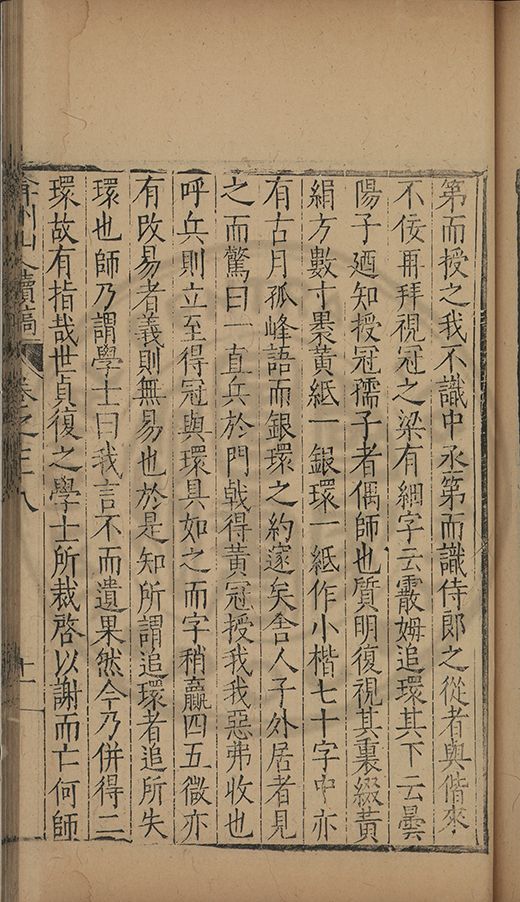 第而授之我不識中丞第而識侍郎之從者與偕來
不佞再拜視冠之梁有細字云霰姆追環其下云曇
陽子廼知授冠孺子者偶師也質明復視其裏綴黃
絹方數寸褁黃紙一銀環一紙作小楷七十字中亦
有古月孤峰語而銀環之約邃矣舎人子外居者見
之而驚曰一直兵於門戟得黃冠授我我惡弗收也
呼兵則立至得冠與環具如之而字稍贏四五微亦
有改易者義則無易也於是知所謂追環者追所失
環也師乃謂學士曰我言不而遺果然今乃併得二
環故有指哉世貞復之學士所裁啓以謝而亡何師
弇州山人續稿 卷之